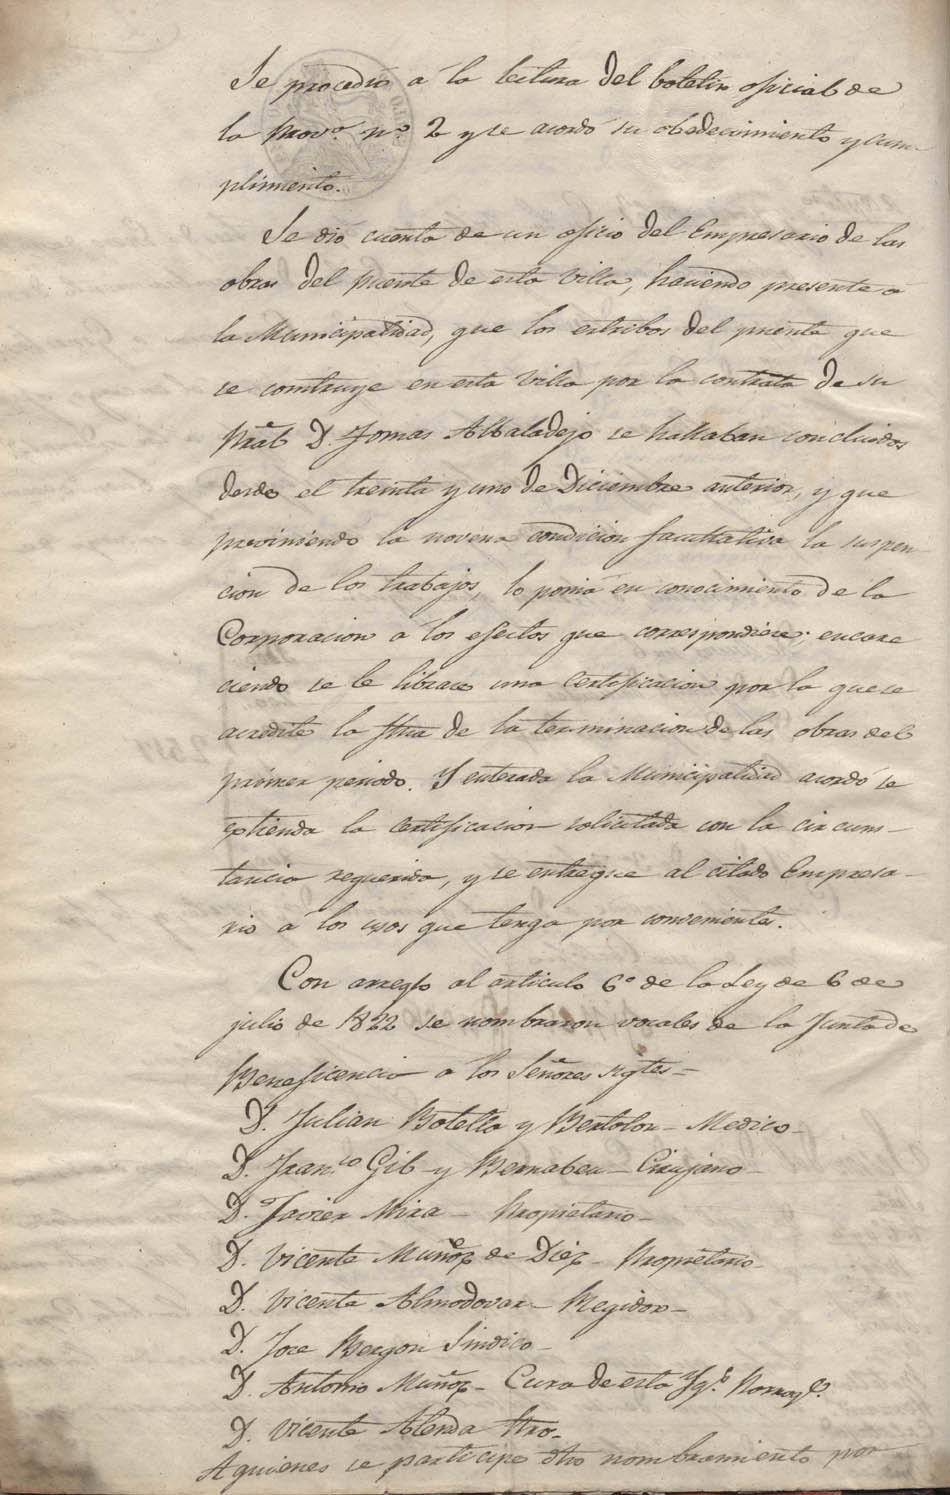 Se procedió a la lectura del boletin oficial de
la Provª. nº. 2 y se acordó su obedecimiento y cum-
plimiento.
Se dió cuenta de un oficio del Empresario de las
obras del puente de esta Villa, haciendo presente a
la Municipalidad, que los estribos del puente que
se construye en esta Villa por la contrata de su
Pral D. Tomas Albaladejo se hallaban concluidos
desde el treinta y uno de Diciembre anterior, y que
previniendo la novena condicion facultativa la suspen
cion de los trabajos, lo ponia en conocimiento de la
Corporacion a los efectos que correspondiere; encare
ciendo se le librace una certificacion por la que se
acredite la fha de la terminacion de las obras del
primer periodo. Y enterada la Municipalidad acordó se
extienda la certificacion solicitada con la circuns-
tancia requerida, y se entregue al citado Empresa-
rio a los usos que tenga por conveniente.
Con arreglo al articulo 6º de la Ley de 6 de
julio de 1822 se nombraron vocales de la Junta de
Beneficencia a los Señores sigtes-
D. Julian Botella y Bertolon - Medico-
D. Franco Gil y Bernabeu - Cirujano-
D. Javier Mira - Propietario-
D. Vicente Muñoz de Diez - Propietario-
D. Vicente Almodovar - Regidor-
D. Jose Bergon Sindico-
D. Antonio Muñoz - Cura de esta Ygª. Parroql.
D. Vicente Alenda
A quienes se participe dho nombramiento por